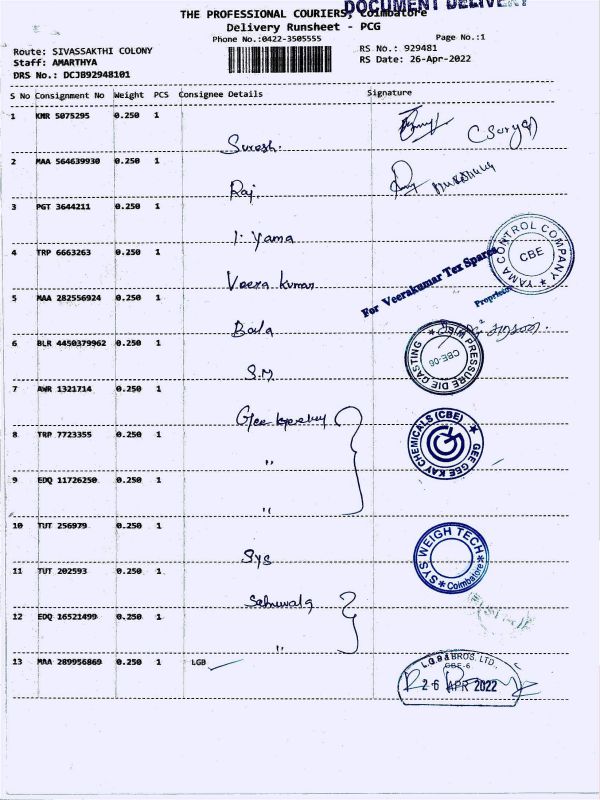 DOCUMENT DELIVERY
THE PROFESSIONAL COURIERS, Coimbatore
Delivery Runsheet - PCG
Phone No.:0422-3505555
Page No.:1
Route: SIVASSAKTHI COLONY
RS No.: 929481
Staff: AMARTHYA
RS Date: 26-Apr-2022
DRS No.: DCJB92948101
S No Consignment No Weight PCS Consignee Details Signature
1 KMR 5075295 0.250 1 Suresh. (Surya)
2 MAA 564639930 0.250 1 Raj.
3 PGT 3644211 0.250 1 1. Yama
YAMA CONTROL COMPANY ★ CBE
4 TRP 6663263 0.250 1 Veera kumar
For Veerakumar Tex Spares
Proprietor
5 MAA 282556924 0.250 1 Bala
6 BLR 4450379962 0.250 1 S.M
PRESSURE DIE CASTING CBE-06
7 AWR 1321714 0.250 1 Gee
GEE GEE KAY CHEMICALS (CBE) ★
8 TRP 7723355 0.250 1 "
9 EDQ 11726250 0.250 1 "
10 TUT 256979 0.250 1 Sys
SYS WEIGH TECH ★ Coimbatore ★
11 TUT 202593 0.250 1
12 EDQ 16521499 0.250 1 "
13 MAA 289956869 0.250 1 LGB
L.G.B & BROS. LTD.
CBE-6
26 APR 2022